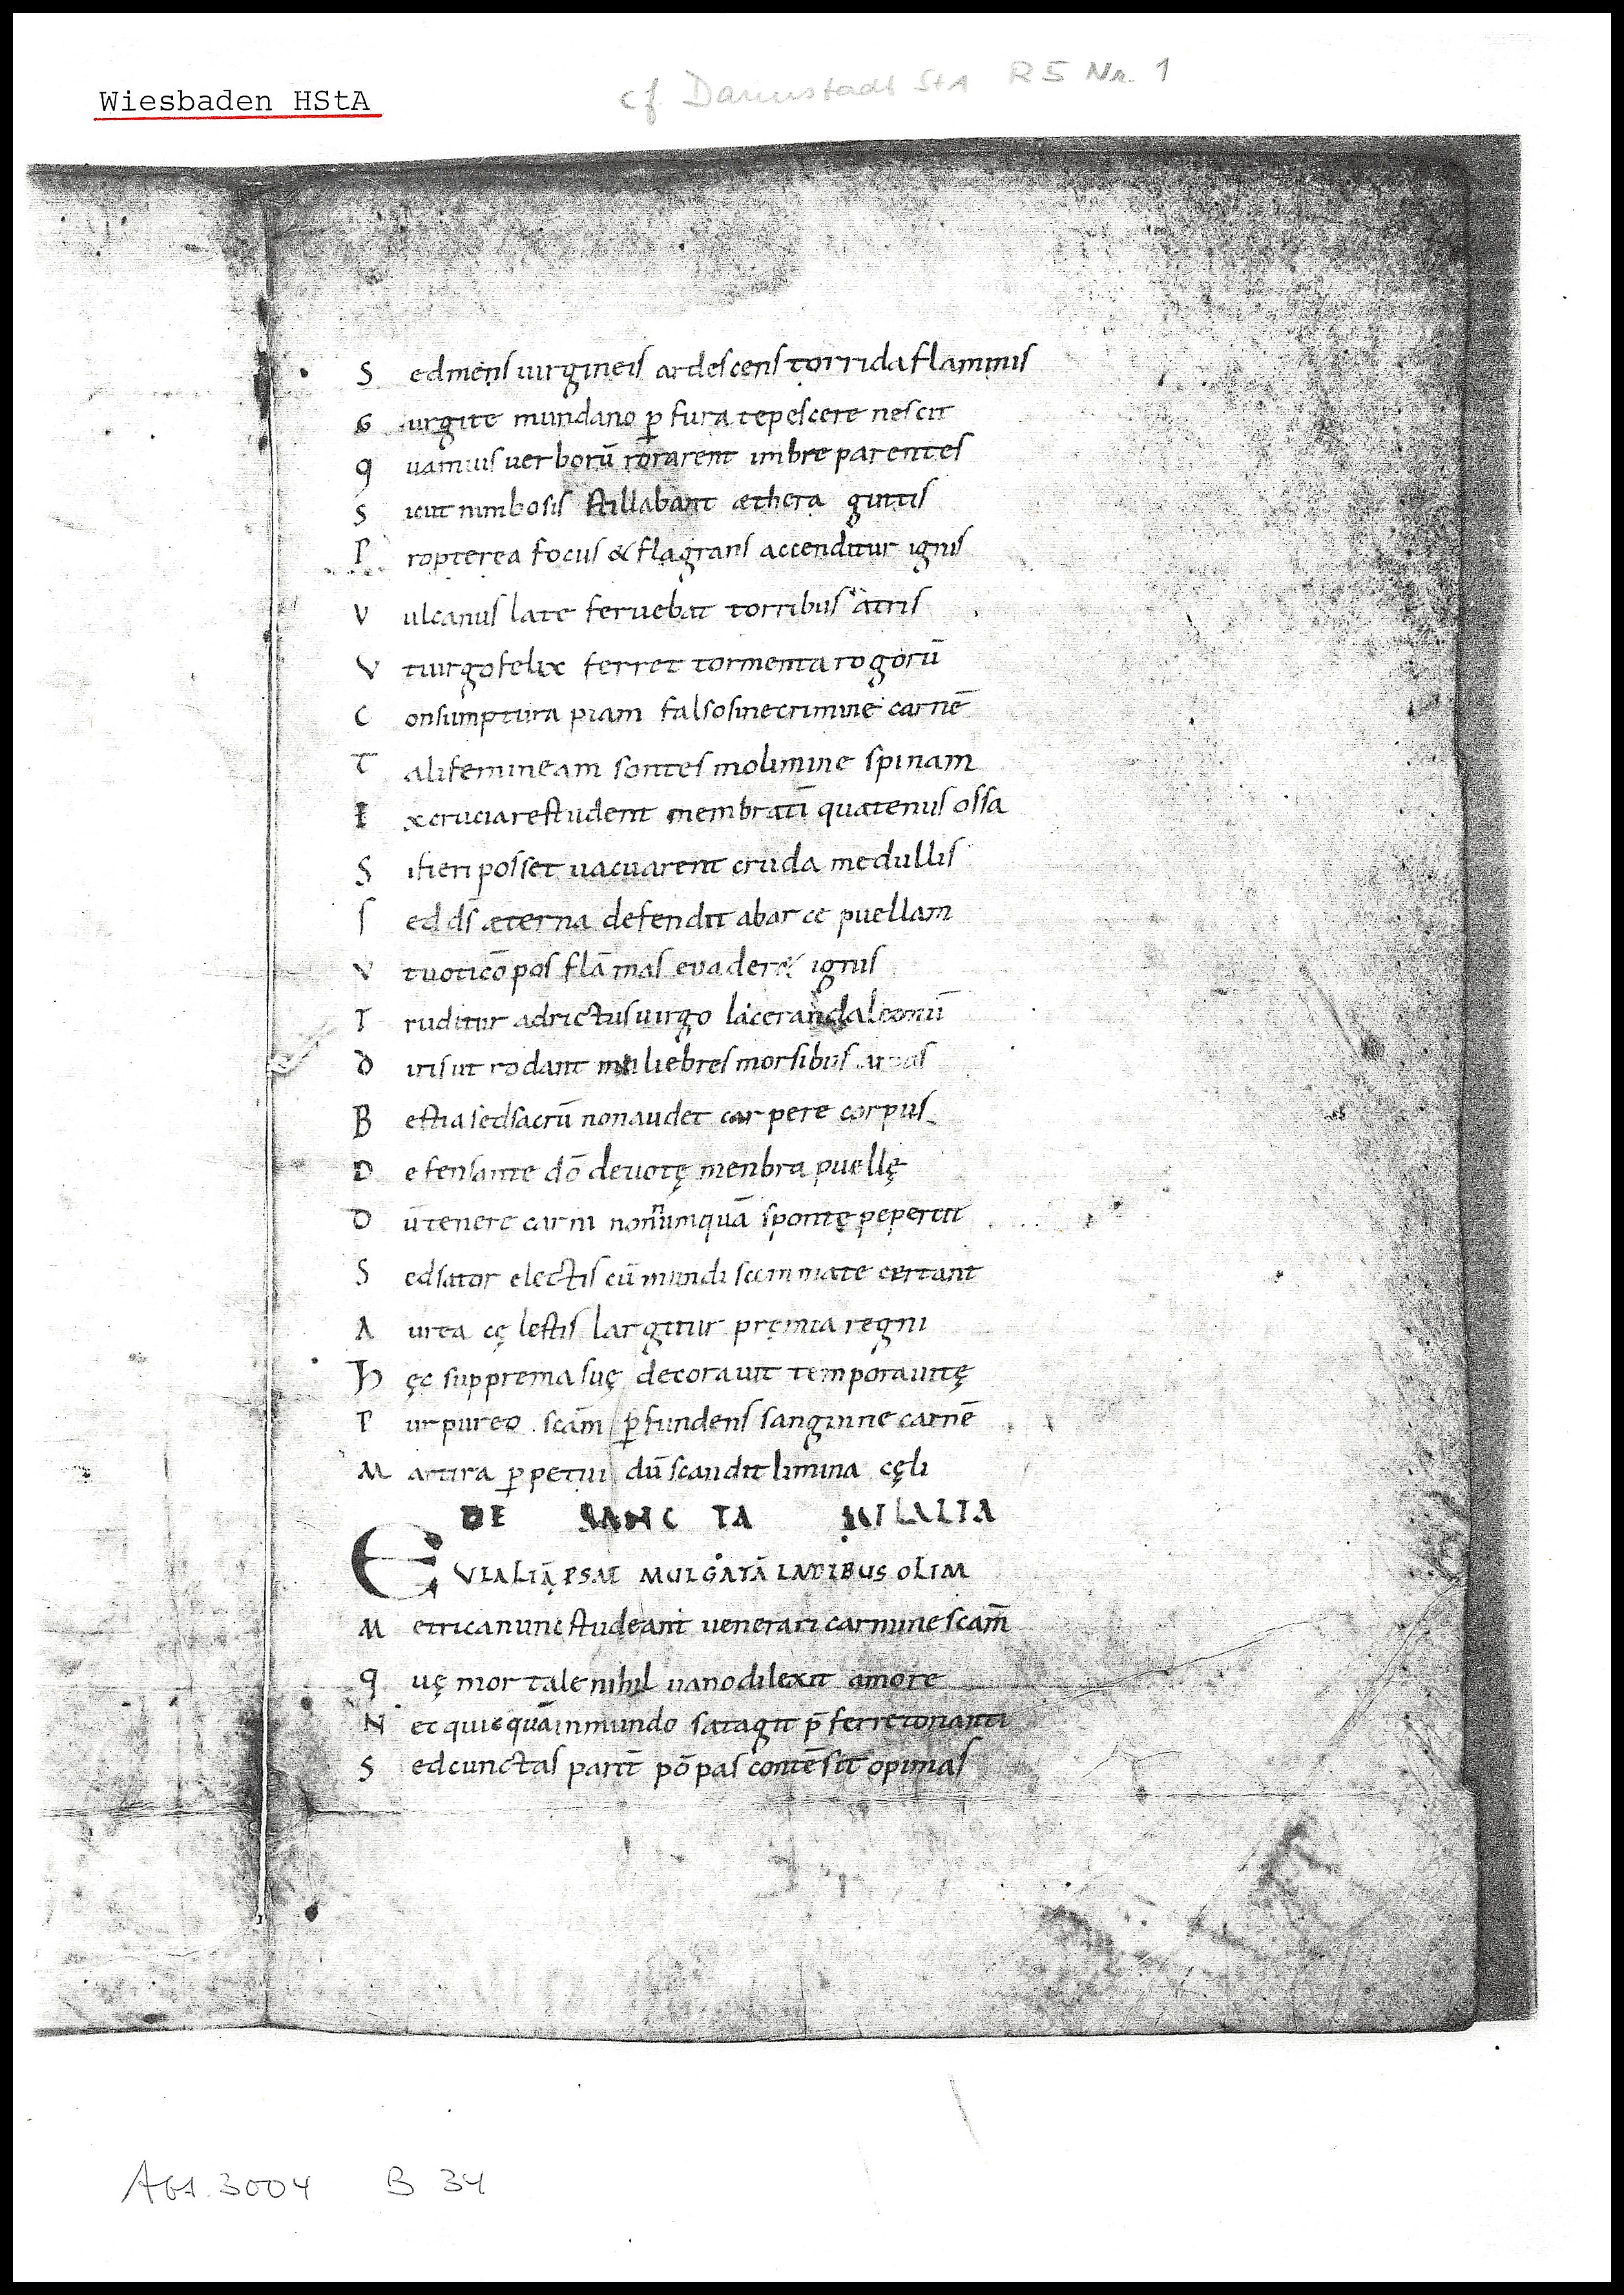 Wiesbaden HStA
cf. Darmstadt StA R 5 Nr. 1
S edmens uirgineis ardescens torrida flammis
G urgite mundano p̱ fura tepescere nescit
q uamuis uerborū rorarent imbre parentes
S icut nimbosis stillabant æthera guttis
P ropterea focus & flagrans accenditur ignis
V ulcanus late feruebat torribus atris
V t uirgo felix ferret tormenta rogorū
C onsumptura piam falso sine crimine carnē
T ali femineam sontes molimine spinam
E xcruciare student membratī quatenus ossa
S i fieri posset uacuarent cruda medullis
S ed ds̄ æterna defendit ab arce puellam
V t uoti cōpos flāmas euadere ignis
T ruditur ad rictus uirgo laceranda leonū
D iris ut rodant muliebres morsibus
B estia sed sacrū non audet carpere corpus
D efensante dō deuotę menbra puellę
D ū tenere carni non umquā sponte pepercit
S ed sator electis cū mundi scammate certant
A urea cęlestis largitur pręmia regni
H ęc supprema suę decorauit tempora uitę
P urpureo scām p̱fundens sanguine carnē
M artira p̱petui dū scandit limina cęli
DE SANCTA
E VLALIĀ PSAT MULGATĀ LATIBUS OLIM
M etrica nunc studeant uenerari carmine scam̄
q uę mortale nihil uano dilexit amore
N ec quicquā in mundo satagit p̄ferre tonanti
S ed cunctas paritē pōpas contēsit opimas
Abt. 3004 B 34